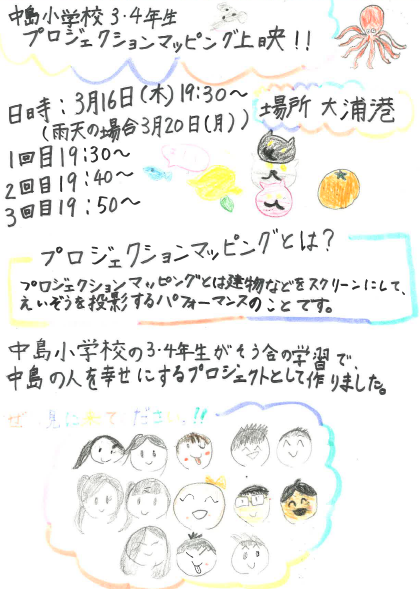 中島小学校3・4年生
プロジェクションマッピング上映!!
日時:3月16日(木)19:30〜
(雨天の場合3月20日(月))
場所 大浦港
1回目19:30〜
2回目19:40〜
3回目19:50〜
プロジェクションマッピングとは?
プロジェクションマッピングとは建物などをスクリーンにして、
えいぞうを投影するパフォーマンスのことです。
中島小学校の3・4年生がそう合の学習で、
中島の人を幸せにするプロジェクトとして作りました。
ぜひ見に来てください!!